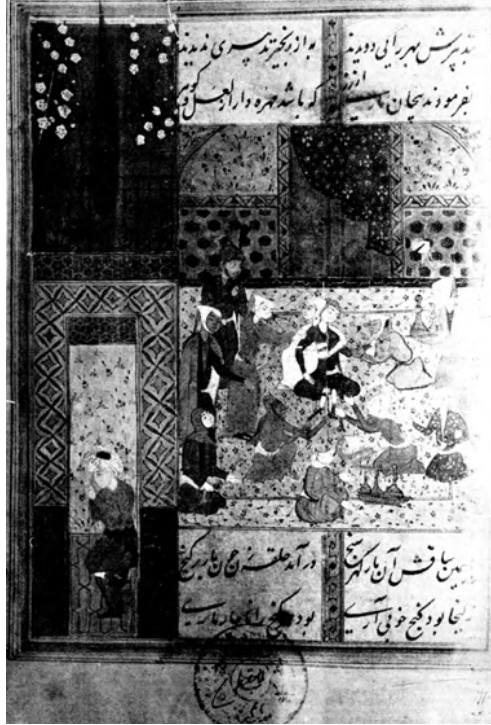 بتدبیرش بهر رایی دویدند به از زنجیر تدبیری ندیدند
بفرمودند پیچان ماری از زر که باشد مهره دار از لعل و گوهر
بسیمین ساقش آن مار گهرسنج درآمد حلقه زن چون مار بر گنج
زلیخا بود گنج خوبی آری بود هر گنج را ناچار ماری